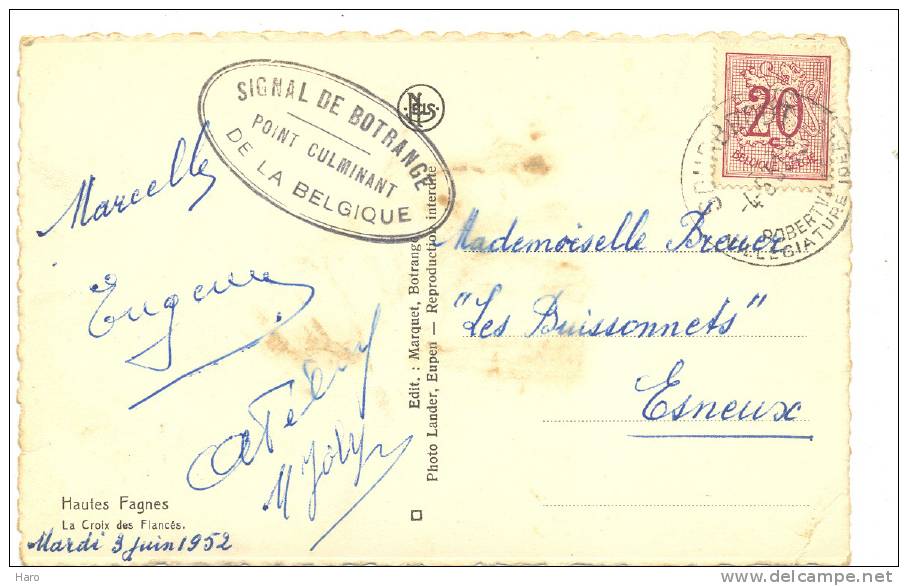 SIGNAL DE BOTRANGE
POINT CULMINANT
DE LA BELGIQUE
NELS
20
BELGIQUE-BELGIE
SOURBRODT
ROBERTVILLE
VILLEGIATURE IDEALE
Marcelle
Eugenie
M Joly
Mademoiselle Breuer
"Les Buissonnets"
Esneux
Edit. : Marquet, Botrange
Photo Lander, Eupen — Reproduction interdite
Hautes Fagnes
La Croix des Fiancés.
Mardi 3 juin 1952
Haro
www.delcampe.net